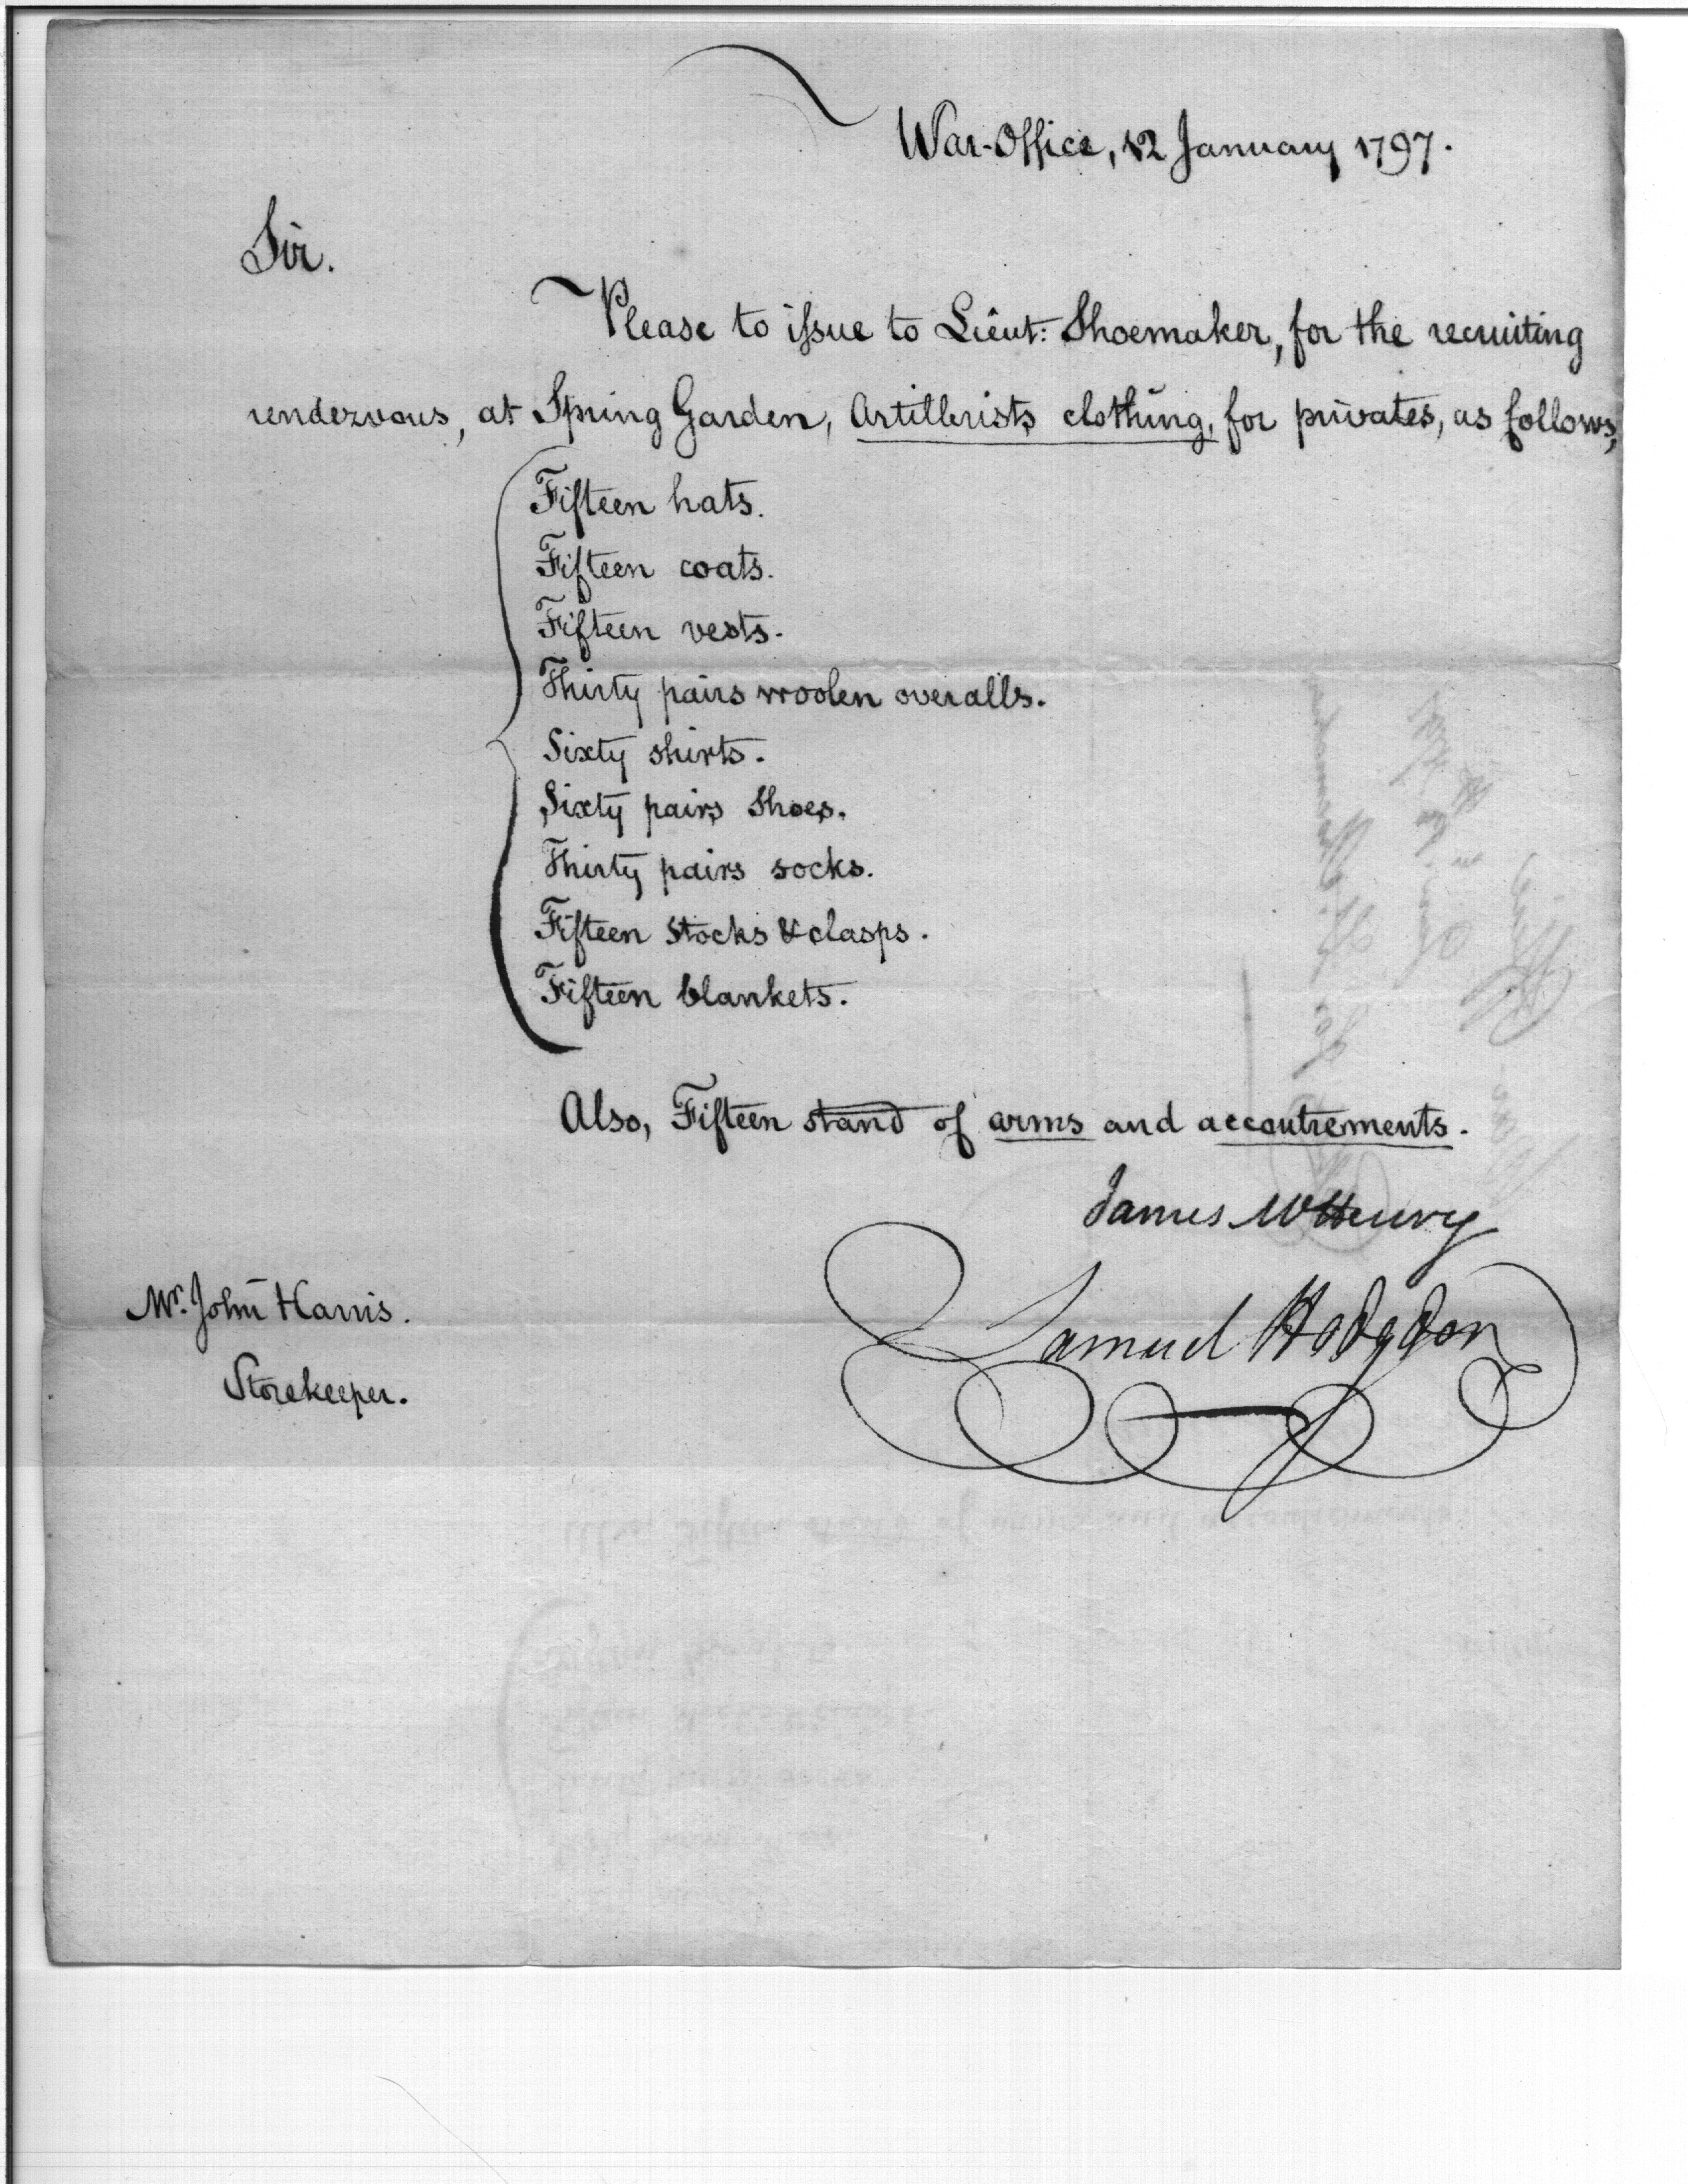 War-Office, 12 January 1797.
Sir.
Please to issue to Lieut: Shoemaker, for the recruiting
rendezvous, at Spring Garden, Artillerists clothing, for privates, as follows,
Fifteen hats.
Fifteen coats.
Fifteen vests.
Thirty pairs woolen overalls.
Sixty shirts.
Sixty pairs Shoes.
Thirty pairs socks.
Fifteen Stocks & clasps.
Fifteen blankets.
Also, Fifteen stand of arms and accoutrements.
James McHenry
Samuel Hodgdon
Mr. John Harris.
Storekeeper.